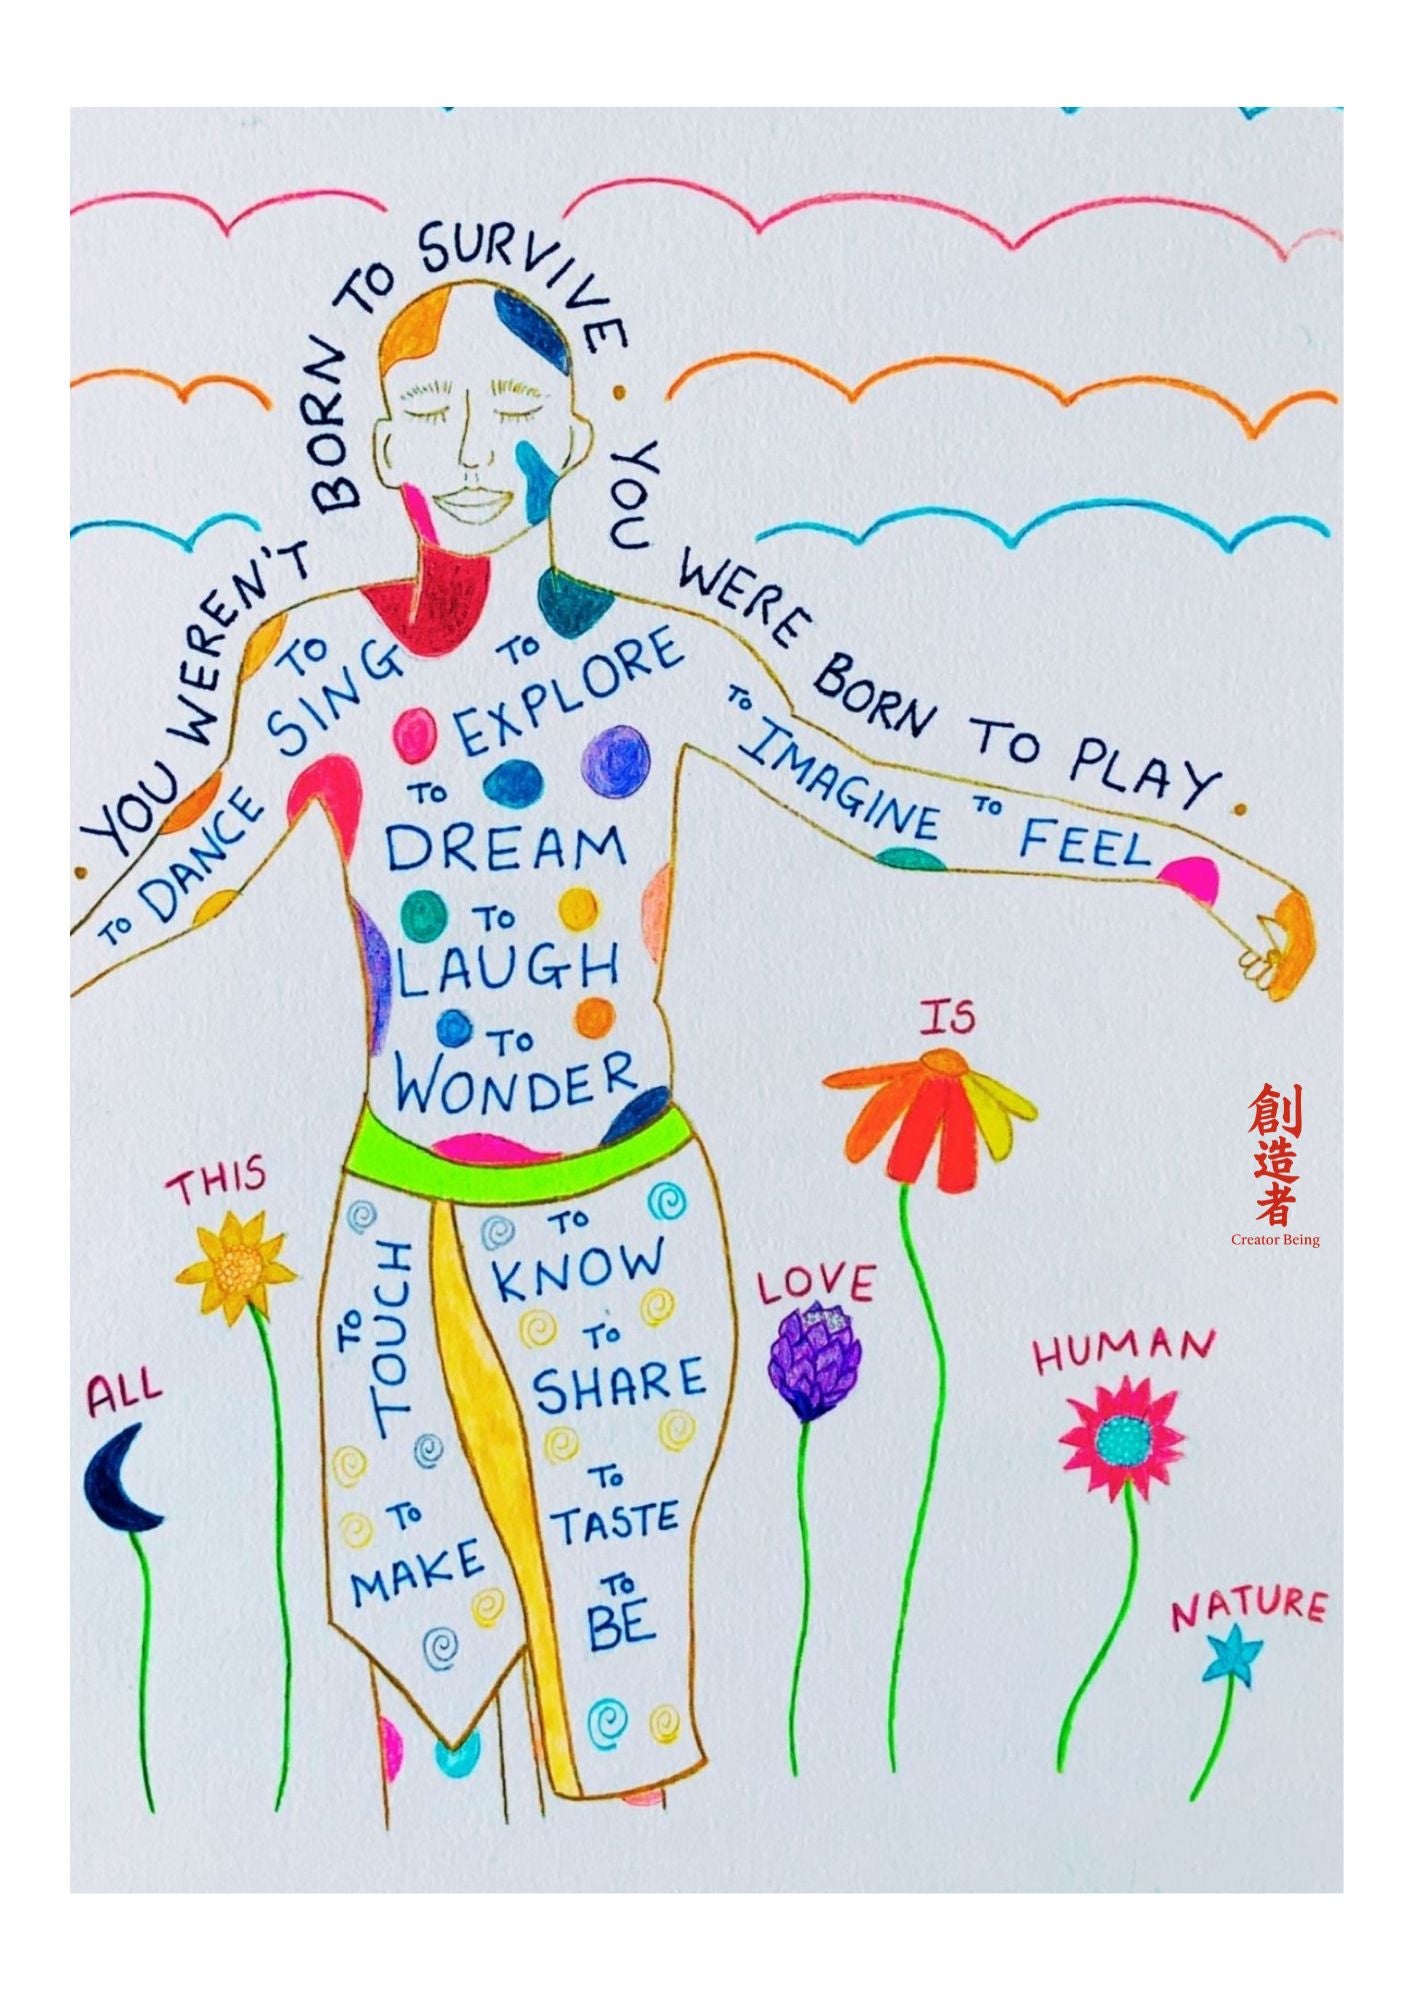 YOU WEREN'T BORN TO SURVIVE • YOU WERE BORN TO PLAY •
TO DANCE
TO SING
TO EXPLORE
TO IMAGINE
TO FEEL
TO DREAM
TO LAUGH
TO WONDER
TO TOUCH
TO MAKE
TO KNOW
TO SHARE
TO TASTE
TO BE
ALL
THIS
LOVE
IS
HUMAN
NATURE
創造者
Creator Being